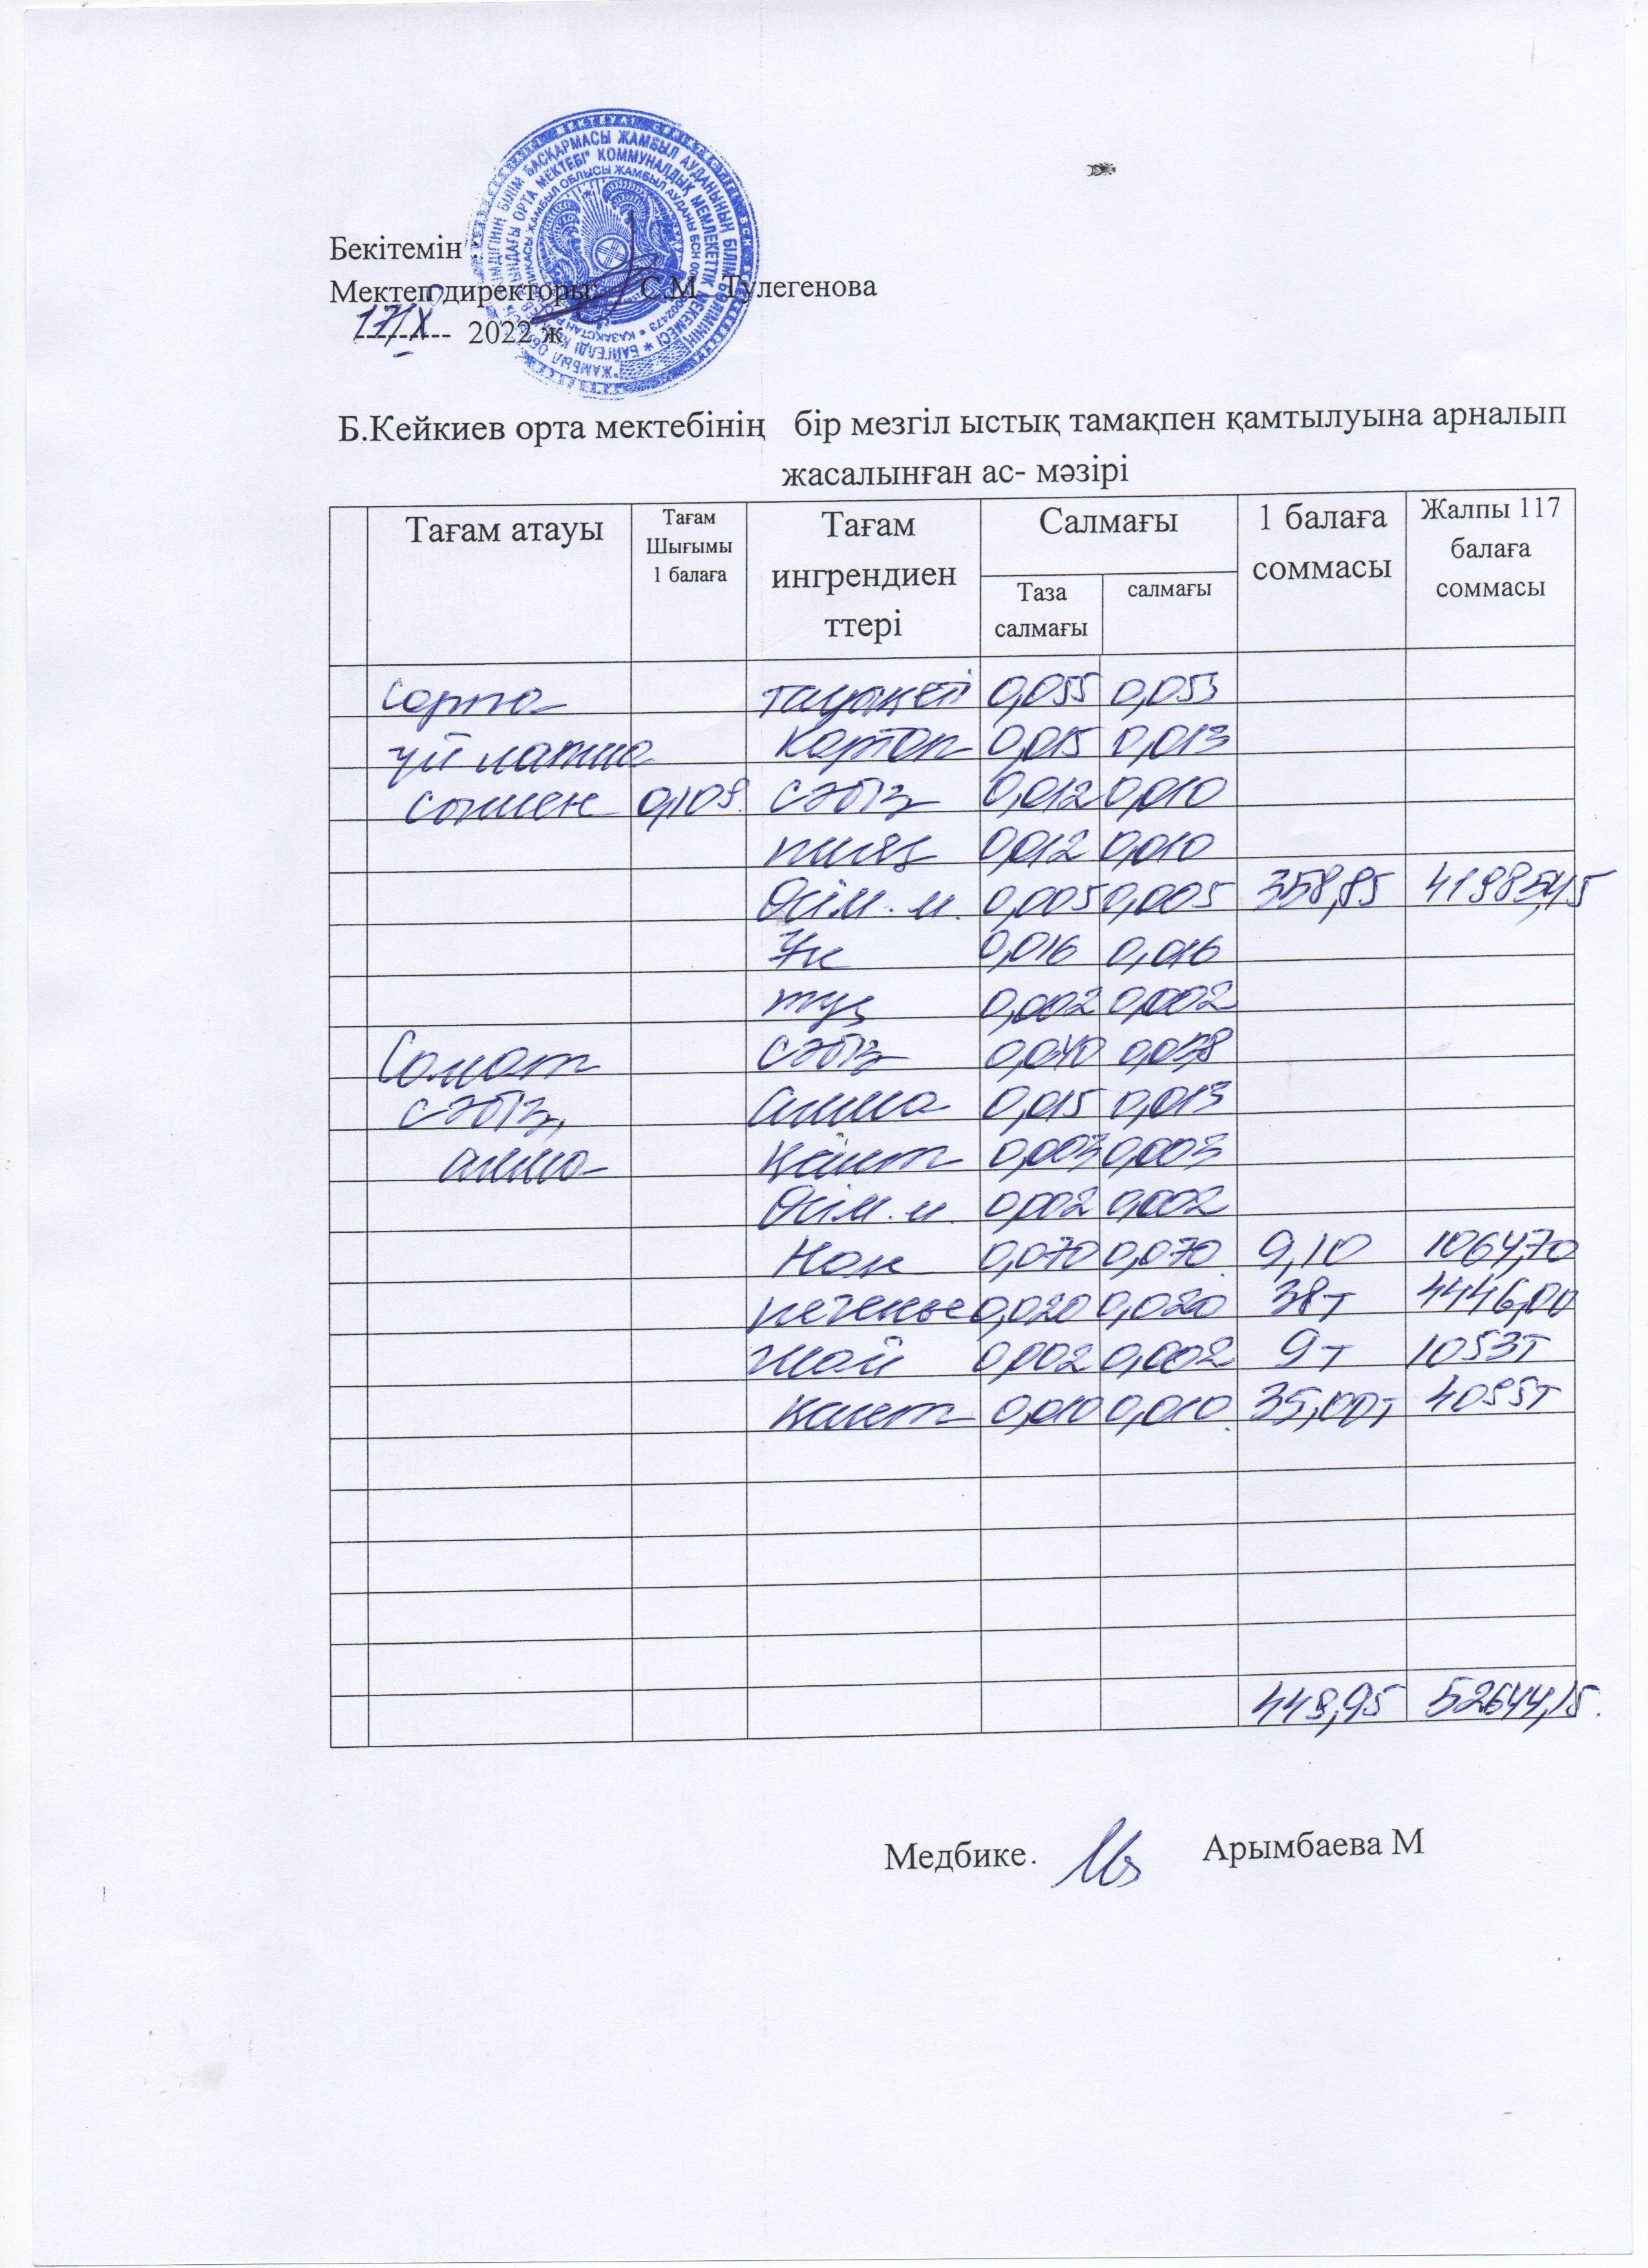 Бекітемін
Мектеп директоры: С.М. Тулегенова
17/X 2022 ж
Б.Кейкиев орта мектебінің бір мезгіл ыстық тамақпен қамтылуына арналып
жасалынған ас- мәзірі
Тағам атауы
Тағам
Шығымы
1 балаға
Тағам
ингрендиен
ттері
Салмағы
Таза
салмағы
салмағы
1 балаға
соммасы
Жалпы 117
балаға
соммасы
Сорпа 0,055 0,053
үй лапша Картоп 0,015 0,013
0,109. сәбіз 0,012 0,010
пияз 0,012 0,010
Өсім. м. 0,005 0,005 358,85 41985,45
Ұн 0,016 0,016
тұз 0,002 0,002
Салат сәбіз 0,040 0,038
сәбіз, алма 0,015 0,013
алма Қант 0,003 0,003
Өсім. м. 0,002 0,002
Нан 0,070 0,070. 9,10 1064,70
печенье 0,020 0,020 38т 4446,00
Шай 0,002 0,002 9т 1053т
Қант 0,010 0,010. 35,00т 4095т
449,95 52644,15.
Медбике. Арымбаева М